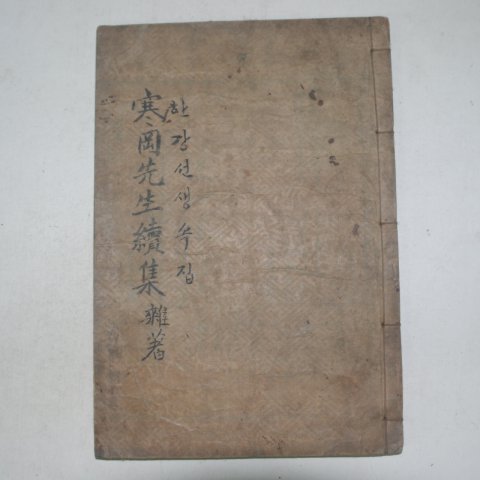 寒岡先生續集 雜著
한강선생속집